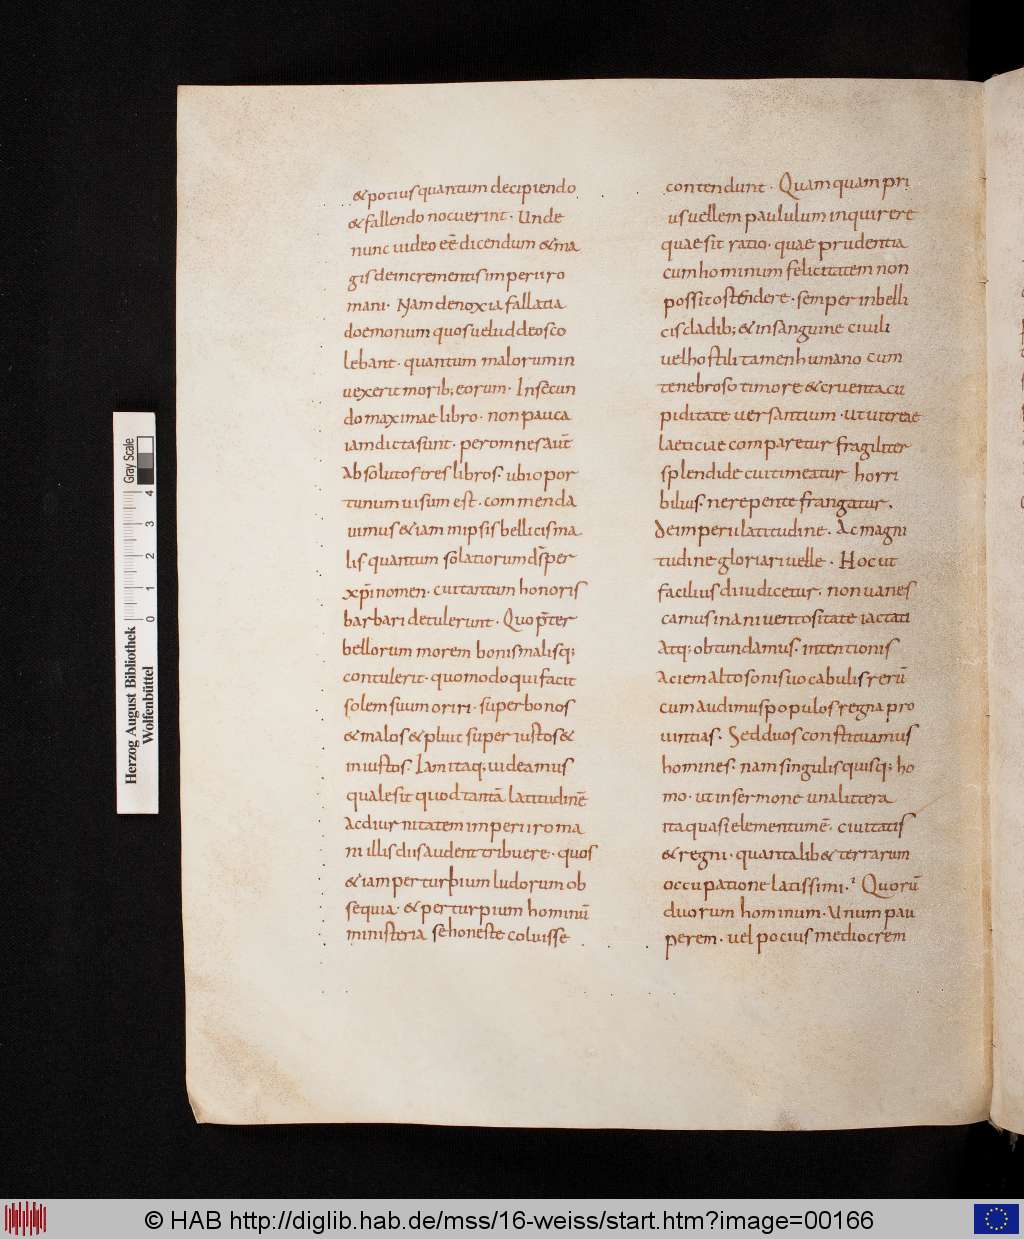 & potius quantum decipiendo
& fallendo nocuerint · Unde
nunc uideo eē dicendum & ma
gis de incrementis imperii ro
mani · Nam de noxia fallatia
doemonum quos uelud deos co
lebant · quantum malorum in
uexerit morib; eorum · In secun
do maximae libro · non pauca
iam dicta sunt · per omnes aut̄
Absolutos tres libros · ubi opor
tunum uisum est · commenda
uimus & iam in ipsis bellicis ma
lis quantum solatiorum d̄s per
xp̄i nomen · cui tantum honoris
barbari detulerunt · Quo p̄ter
bellorum morem bonis malisq;
contulerit · quomodo qui facit
solem suum oriri · super bonos
& malos & pluit super iustos &
iniustos · Iam itaq; uideamus
quale sit quod tantā latitudinē
Ac diurnitatem imperii roma
ni illis diis audent tribuere · quos
& iam per turpium ludorum ob
sequia · & per turpium hominū
ministeria se honeste coluisse
contendunt · Quamquam pri
us uellem paululum inquirere
quae sit ratio · quae prudentia
cum hominum felicitatem non
possit ostendere · semper in belli
cis cladib; & in sanguine ciuili
uel hostili tamen humano cum
tenebroso timore & cruenta cu
piditate uersantium · ut uitreae
laeticiae comparetur fragiliter
splendide cui timeatur horri
bilius · ne repente frangatur ·
De imperii latitudine · Ac magni
tudine gloriari uelle · Hoc ut
facilius diiudicetur · non uanes
camus inani uentositate iactati
Atq; obtundamus · intentionis
Aciem altosonis uocabulis rerū
cum audimus populos regna pro
uintias · Sed duos constituamus
homines · nam singulis quisq; ho
mo · ut in sermone una littera
ita quasi elementum ē · ciuitatis
& regni · quantalib& terrarum
occupatione latissimi · Quorū
duorum hominum · Unum pau
perem · uel pocius mediocrem
Herzog August Bibliothek
Wolfenbüttel
0 1 2 3 4
Gray Scale
© HAB http://diglib.hab.de/mss/16-weiss/start.htm?image=00166